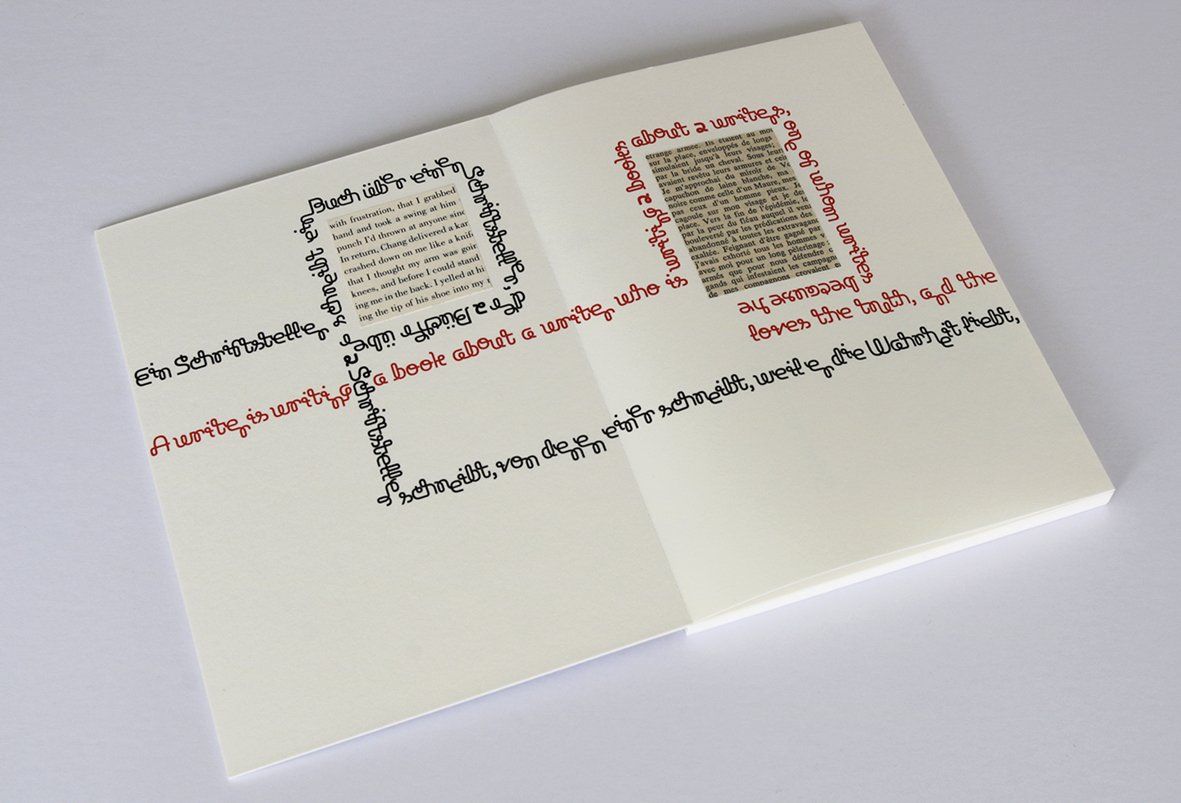 Ein Schriftsteller
schreibt ein
Buch über einen
Schriftsteller, der
2 Bücher über
2 Schriftsteller
schreibt, von denen einer schreibt, weil er die Wahrheit liebt,
with frustration, that I grabbed
hand and took a swing at him
punch I'd thrown at anyone sinc
In return, Chang delivered a kar
crashed down on me like a knif
that I thought my arm was goin
knees, and before I could stand
ing me in the back. I yelled at hi
ing the tip of his shoe into my t
A writer is writing a book about a writer who
is writing 2 books
about 2 writers,
one of whom writes
because he
loves the truth, and the
étrange armée. Ils étaient au moi
sur la place, enveloppés de longs
simulaient jusqu'à leurs visages;
par la bride un cheval. Sous leur
avaient revêtu leurs armures et cei
Je m'approchai du miroir de Ve
capuchon de laine blanche, ma
noire comme celle d'un Maure, mes
pas ceux d'un homme pieux. Je
cagoule sur mon visage et je de
place. Vers la fin de l'épidémie,
par la peur du fléau auquel il
bouleversé par les prédications des
abandonné à toutes les extravagan
exaltée. Feignant d'être gagné pa
j'avais exhorté tous les hommes
avec moi pour un long pèlerinage
armés que pour nous défendre c
gands qui infestaient les campagne
de mes compagnons croyaie